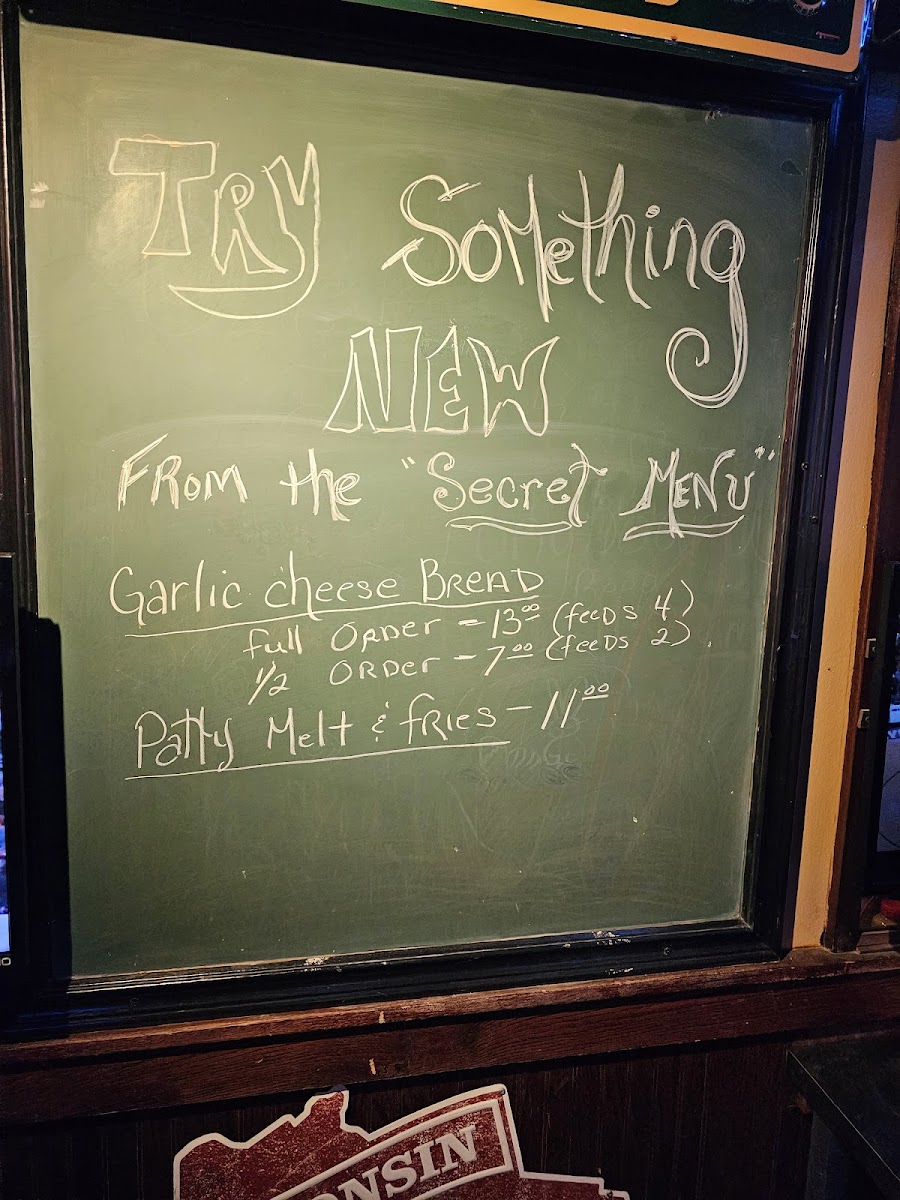 Try Something
NEW
From the "Secret Menu"
Garlic cheese Bread
full order - 13⁰⁰ (feeds 4)
1/2 order - 7⁰⁰ (feeds 2)
Patty Melt & fries - 11⁰⁰